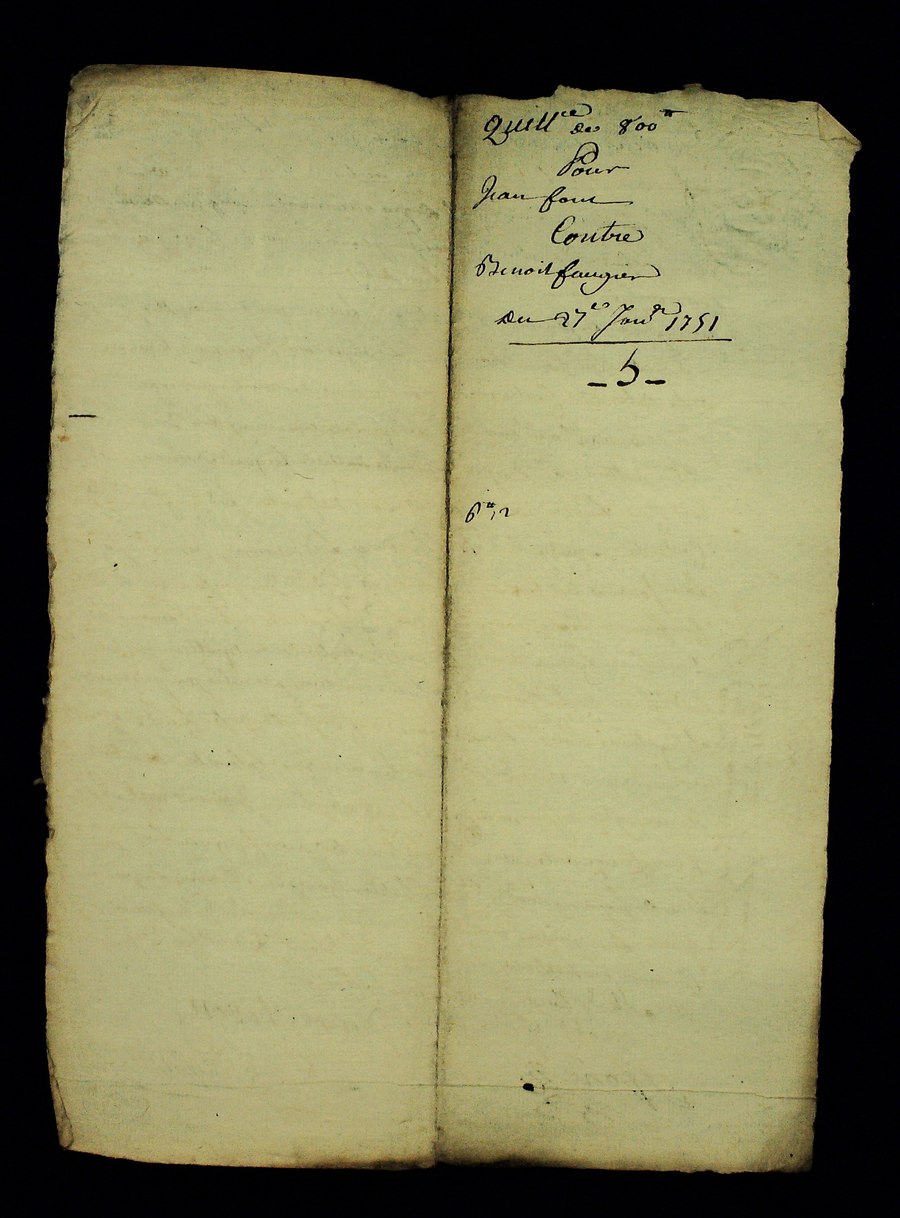 Quittce de 800#
Pour
Jean font
Contre
Benoit faugier
du 27e Janr 1751
- 5 -
6# 12